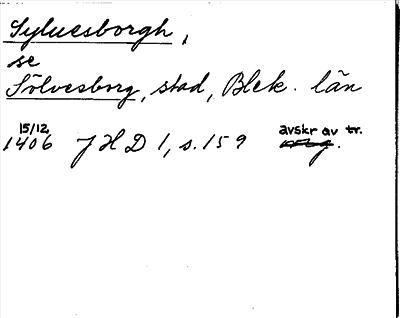 Syluesborgh,
se
Sölvesborg, stad, Blek. län
15/12
1406 JHD 1, s. 159 avskr av tr.